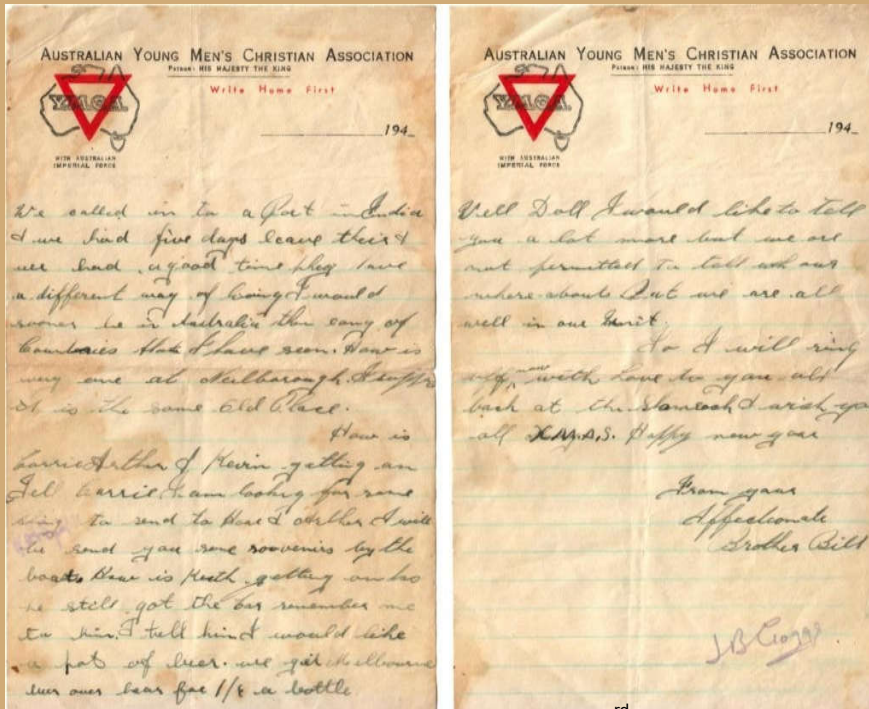 AUSTRALIAN YOUNG MEN'S CHRISTIAN ASSOCIATION
Patron: HIS MAJESTY THE KING
Write Home First
Y.M.C.A.
194_
WITH AUSTRALIAN
IMPERIAL FORCE
We called in to a Port in India
& we had five days leave their &
wee had a good time they have
a different way of living I would
sooner be in Australia than eany of
Countries that I have seen. How is
evry one at Neilborough. I suppose
it is the same Old Place.
How is
Carrie Arthur & Kevin getting on
Tell Carrie I am looking for some
thing to send to Her & Arthur I will
be send you some soovenirs by the
boats How is Keith getting on has
he still got the bar remember me
to him & tell him I would like
a pot of beer. we get Melbourne
beer over hear for 1/8 a bottle
AUSTRALIAN YOUNG MEN'S CHRISTIAN ASSOCIATION
Patron: HIS MAJESTY THE KING
Write Home First
Y.M.C.A.
194_
WITH AUSTRALIAN
IMPERIAL FORCE
Well Doll I would like to tell
you a lot more but we are
not permitted to tell our
where-abouts But we are all
well in our Unit.
So I will ring
off now with Love to you all
back at the Shamrock & wish you
all X.M.A.S. Happy new year
From your
Affectionate
Brother Bill
rd